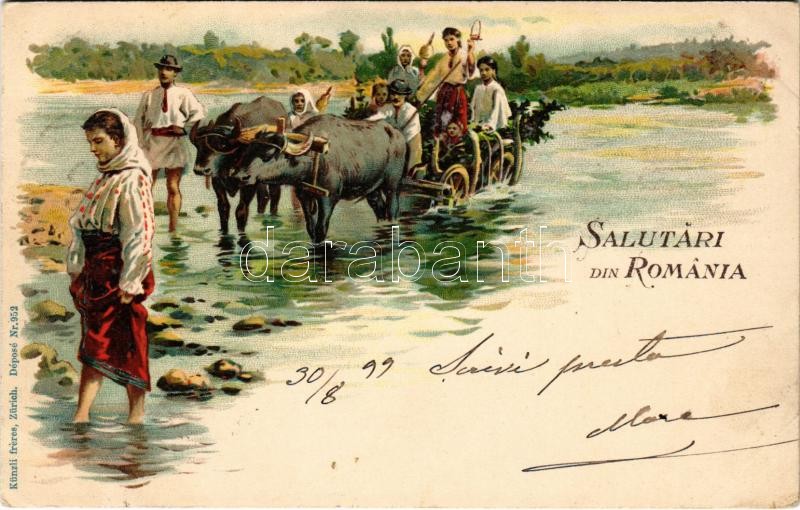 SALUTĂRI
DIN ROMÂNIA
30/8 99 Scrivi presto
Mara
Künzli frères, Zürich. Déposé Nr. 952
darabanth